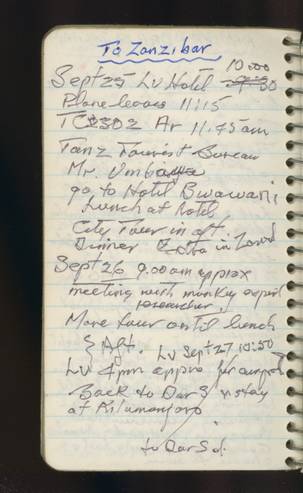 To Zanzibar
10:00
Sept 25 Lv Hotel 9:30
Plane leaves 11:15
TC302 Ar 11.45am
Tanz Tourist Bureau
Mr.
go to Hotel Bwawani
Lunch at hotel
City Tour in aft.
Dinner in
Sept 26 9.00am approx
meeting with monkey expert
researcher
More tour until lunch
& Aft. Lv Sept 27 10:50
Lv 4pm approx for airport
Back to Dar & stay
at Kilamanjaro
to Dar S.